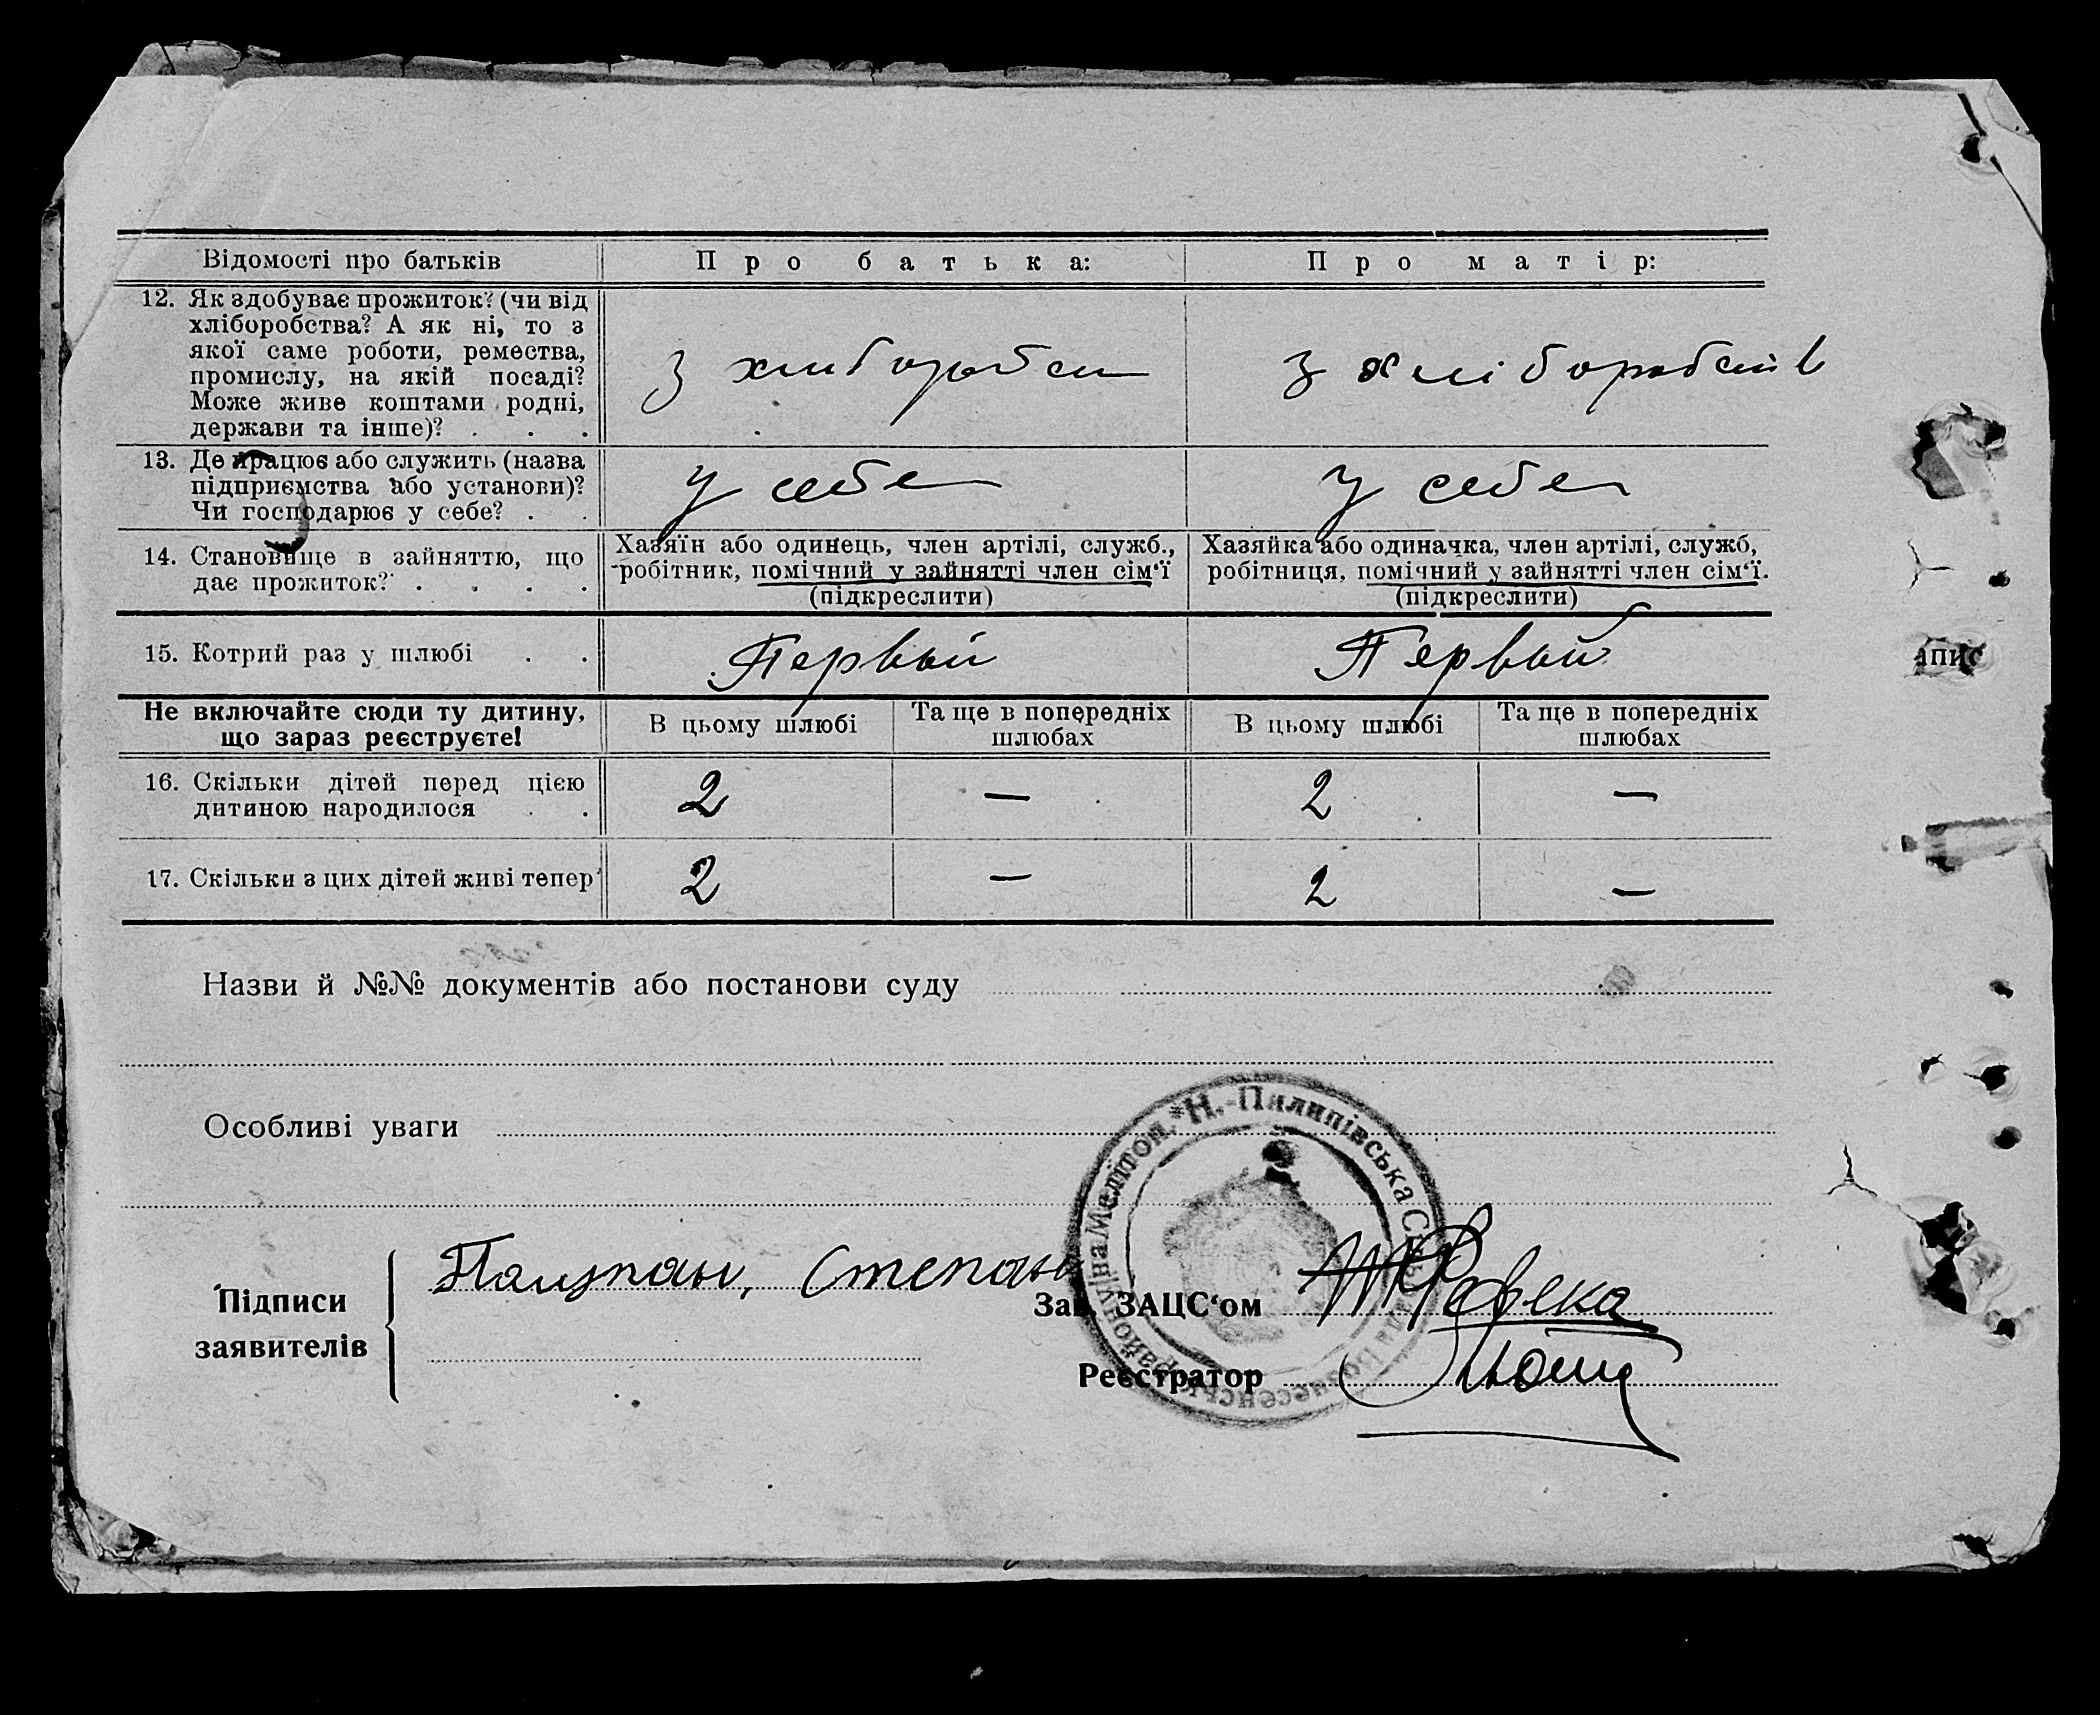 Відомості про батьків
Про батька:
Про матір:
12. Як здобуває прожиток? (чи від
хліборобства? А як ні, то з
якої саме роботи, ремества,
промислу, на якій посаді?
Може живе коштами родні,
держави та інше)? . . .
З
З хліборобств
13. Де працює або служить (назва
підприємства або установи)?
Чи господарює у себе? . .
у себе
у себе
14. Становище в зайняттю, що
дає прожиток? . . . .
Хазяїн або одинець, член артілі, служб.,
робітник, помічний у зайнятті член сім‘ї
(підкреслити)
Хазяйка або одиначка, член артілі, служб,
робітниця, помічний у зайнятті член сім‘ї.
(підкреслити)
15. Котрий раз у шлюбі . .
Первый
Первый
апис
Не включайте сюди ту дитину,
що зараз реєструєте!
В цьому шлюбі
Та ще в попередніх
шлюбах
В цьому шлюбі
Та ще в попередніх
шлюбах
16. Скільки дітей перед цією
дитиною народилося . .
2
—
2
—
17. Скільки з цих дітей живі тепер
2
—
2
—
Назви й №№ документів або постанови суду
Особливі уваги
*Н.-Пилипівська
Мелітоп.
Підписи
заявителів
Степан
Зав. ЗАЦС‘ом
Реєстратор